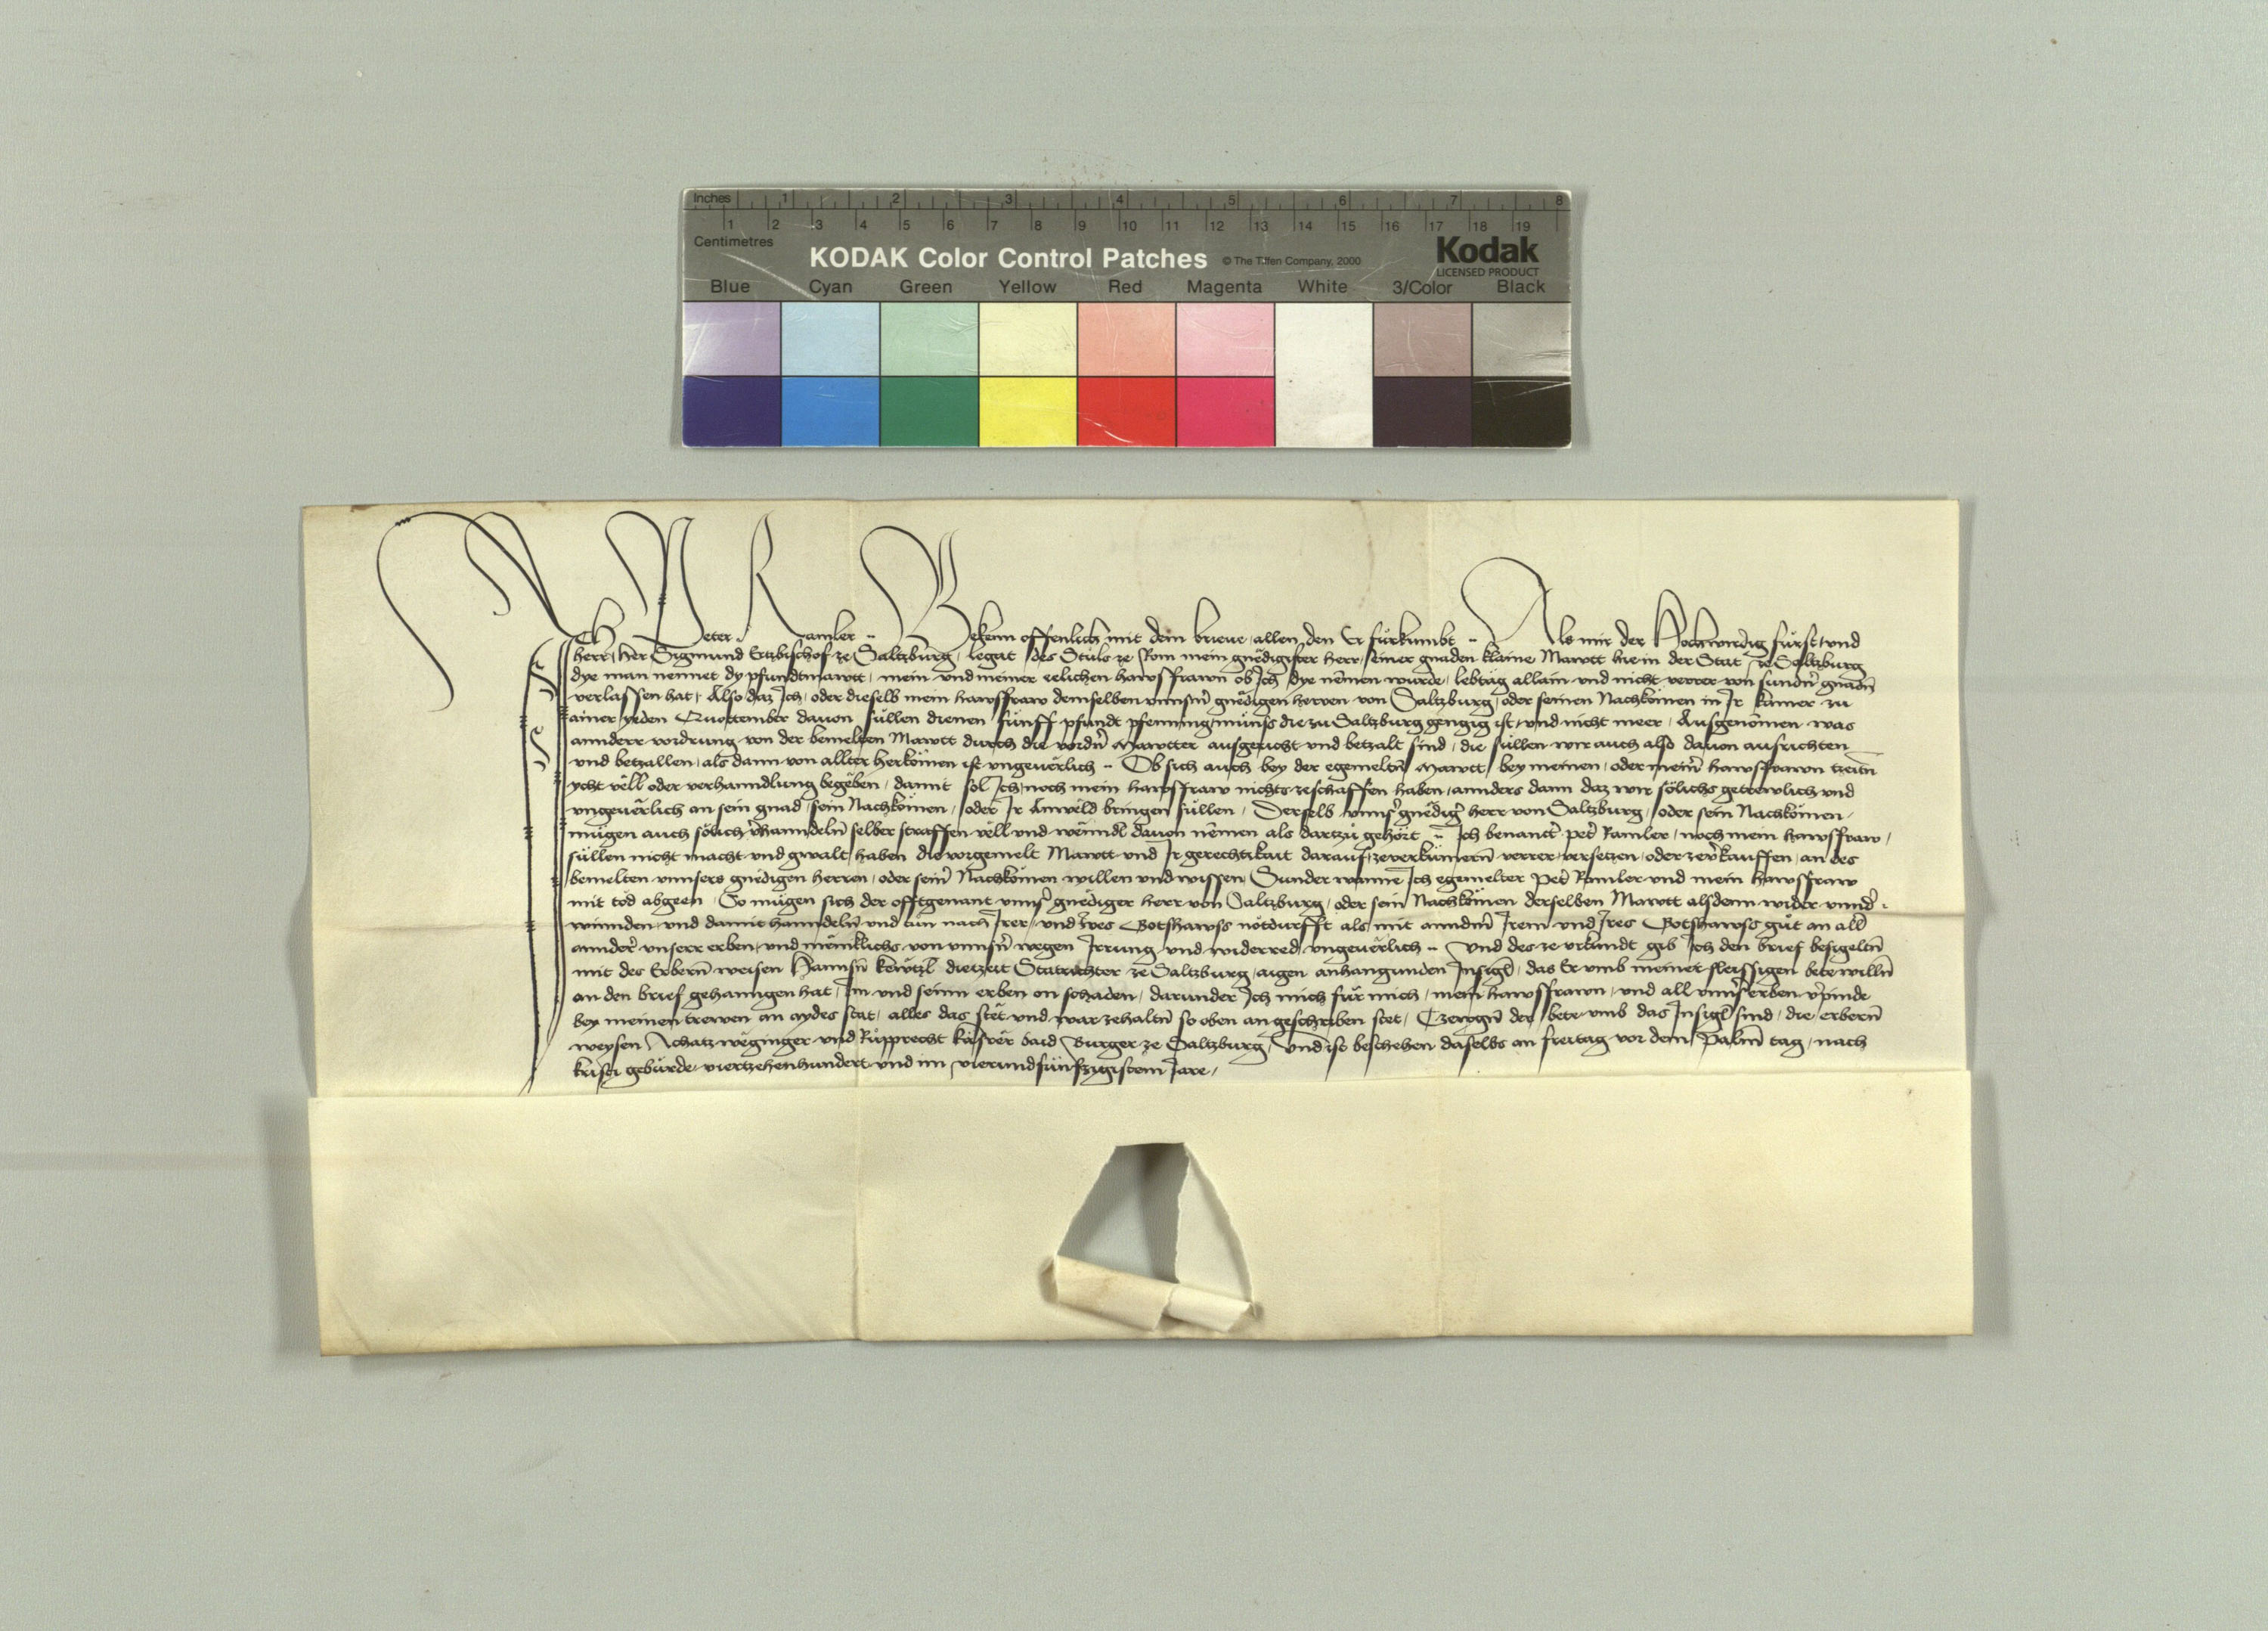 Inches 1 2 3 4 5 6 7 8
1 2 3 4 5 6 7 8 9 10 11 12 13 14 15 16 17 18 19
Centimetres
KODAK Color Control Patches © The Tiffen Company, 2000 Kodak
LICENSED PRODUCT
Blue Cyan Green Yellow Red Magenta White 3/Color Black
Ich Peter Ramler Bekenn offenlich mit dem brieue allen den Er fürkumbt Als mir der Hochwirdig fürst und
herr her Sigmund Ertzbischof ze Saltzburg legat des Stuls ze Rom mein gnëdigister herr seiner gnaden klaine Mawtt hie in der Stat ze Saltzburg
dye man nennet dy pfundtmawtt mein und meiner eelichen hawsfrawn ob Ich dye nëmen wurde lebtäg allain und nicht verrer von sundn̄ gnadn̄
verlassen hat Also daz Ich oder dieselb mein hawsfraw demselben unnsm̄ gnëdigen herren von Saltzburg oder seinen Nachkömen in Ir kamer zu
ainer yeden Quottember dauon süllen dienen fünff pfundt pfenning münss die zu Saltzburg gengig ist und nicht meer Ausgenömen was
annderr vordrung von der bemelten Mawtt durch die vordn̄ Mawtter ausgericht und betzalt sind die süllen wir auch also dauon ausrichten
und betzallen als dann von allter herkömen ist ungeuërlich Ob sich auch bey der egemeltn̄ Mawtt bey meinen oder meinn̄ hawsfrawn tzeitn̄
ycht vëll oder verhanndlung begëben damit sol Ich noch mein hawsfraw nichts zeschaffen haben annders dann daz wir sölichs getrewlich und
ungeuërlich an sein gnad sein Nachkömen oder Ir Anwëld bringen süllen Derselb unnsr̄ gnëdigr̄ herr von Saltzburg oder sein Nachkömen
mügen auch sölich v̄hanndeln̄ selber straffen vëll und wënndl dauon nëmen als dartzü gehört Ich benantr̄ Petr̄ Ramler noch mein hawsfraw
süllen nicht macht und gwalt haben die vorgemelt Mawtt und Ir gerechtikait darauf zeverkümern̄ verrer versetzen oder zev̄kauffen an des
bemelten unnsers gnëdigen herren oder seinr̄ Nachkömen willen und wissen Sunder wanne Ich egemelter Petr̄ Ramler und mein hawsfraw
mit töd abgeen So mügen sich der offtgenant unnsr̄ gnëdiger herr von Saltzburg oder sein Nachkömen derselben Mawtt alsdenn wider unndr̄
winnden und damit hanndeln̄ und tün nach Irer und Ires Gotshawss nötdurfft als mit anndm̄ Irem und Ires Gotshawss güt an all
anndr̄ unserr erben und mëniklichs von unnsn̄ wegen Irrung und widerred ungeuërlich Und des ze urkundt gib Ich den brief besigeltn̄
mit des Erbern̄ weisen Hannsn̄ diezeit Statrichter ze Saltzburg aigen anhangunden Insigl̄ das Er umb meiner fleissigen bete willn̄
an den brief gehanngen hat Im und seinn erben on schaden darunder Ich mich für mich mein hawsfrawn und all unnsr̄ erben v̄pinde
bey meinen trewen an aydes stat alles das stët und war zehaltn̄ so oben an geschriben stet Czewgn̄ der bete umb das Insigl̄ sind die erbern̄
weysen Achatz wëginger und Rupprecht baid Burger ze Saltzburg Und ist beschehen daselbs an freitag vor dem Palm̄ tag nach
kristi gebürde viertzehenhundert und im vierundfünfzigistem Jare